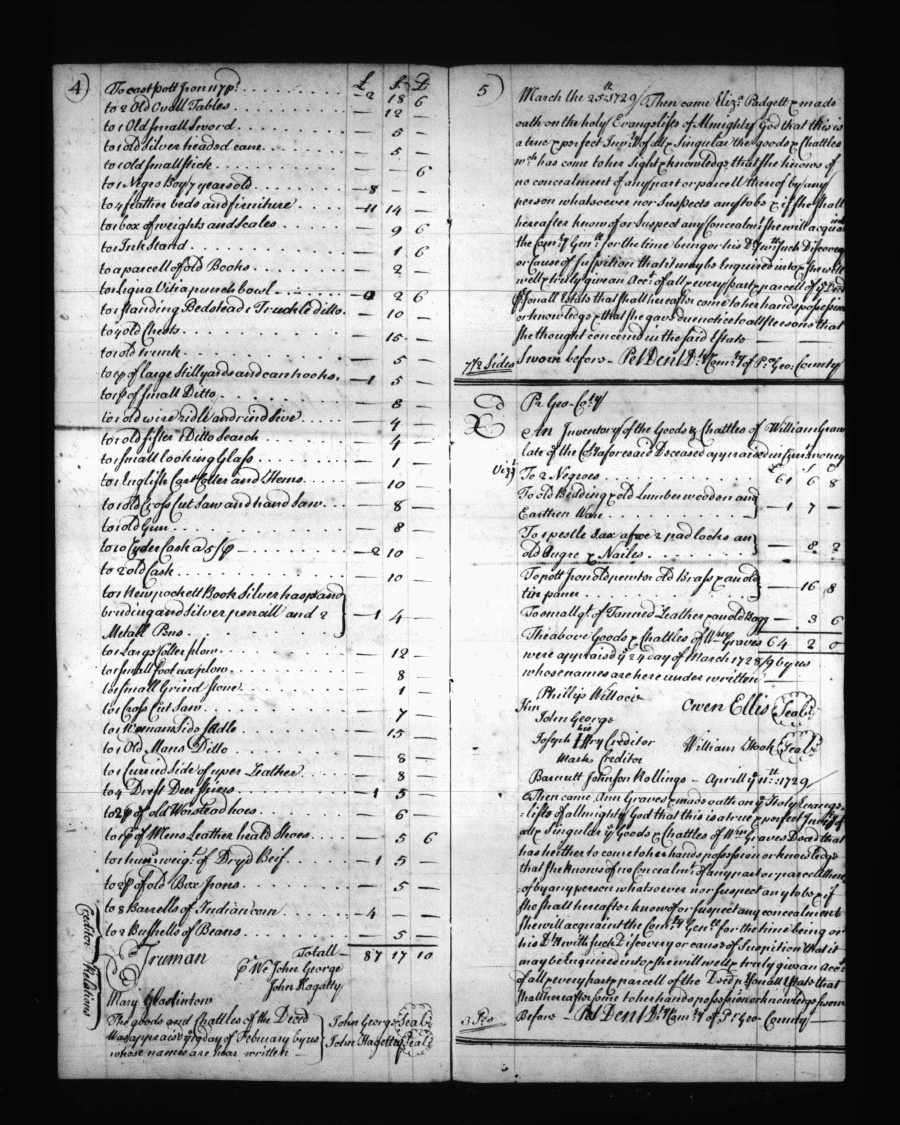 4)
£ S D
To cast pott Iron 117 p.d 2 18 6
to 2 Old Ovall Tables — 12 —
to 1 Old Small Sword — 5 —
to 1 old Silver headed cane — 5 —
to 1 old Small stick — — 6
to 1 Negro Boy 7 years old 8 — —
to 4 feather beds and furniture 11 14 —
to 1 box of weights and scales — 9 6
to 1 Ink Stand — 1 6
to a parcell of old Books — 2 —
to Ligna Vitia punch bowl — 2 6
to 1 standing Bedstead 1 Truckle ditto — 10 —
to 4 old Chests — 15 —
to 1 old trunk — 5 —
to 1 p of large Stillyards and can hooks 1 5 —
to 1 p of Small Ditto — 8 —
to 1 old wire ridle and rind sive — 4 —
to 1 old sifter 1 Ditto Search — 4 —
to 1 small looking Glass — 1 —
to 1 English Cart Coller and Hems — 10 —
to 1 old Cross Cut Saw and hand Saw — 8 —
to 1 old Gun — 8 —
to 10 Cyder Cask a 5/p 2 10
to 2 old Cask — 10 —
to 1 New pockett Book Silver hasp and
binding and Silver pencill and 2 1 4 —
Metall Pens
to 1 Large Colter plow — 12 —
to 1 small foot ax plow — 8
to 1 small Grind stone — 1
to 1 Cross Cut Saw — 7 —
to 1 Womans Side Sadle — 15 —
to 1 Old Mans Ditto — 8 —
to 1 Curried Side of uper Leather — 8 —
to 4 Drest Deer Skins 1 5 —
to 2 p of old Worstead hose — 6 —
to 1 p of Mens Leather heald Shoes — 5 6
to 1 hund weig.t of Dryd Beif 1 5 —
to 2 p of old Box Irons — 5 —
to 8 Barrells of Indian corn 4 — —
to 2 Bushells of Beans — 5 —
Truman Totall 87 17 10
John George
John Hagatty
Creditor Relations
Mary
The goods and Chattles of the Deced John George Seal
Was appraisd y 19 day of February by us John Hagatty Seal
whose names are hear written
5)
March the 25th: 1729/ Then came Eliz.a Padgett & made
oath on the holy Evangelists of Almighty God that this is
a true & perfect Inv.ry of all & Singular the goods & Chattles
w.ch has come to her Sight & knowledge that she knows of
no concealment of any part or parcell thereof by any
person whatsoever nor Suspects any to be & if she shall
hereafter know of or Suspect any Concealm.t she will acquaint
the Com.ry Gen.ll for the time being or his D.ty with such Discovery
or Cause of Suspition that it may be Enquired into & she will
well & truly give an Acc.t of all & every part & parcell of y.e Deced
p.sonall Estate that shall hereafter come to her hands possession
or knowledge & that she gave due notice to all persons that
she thought concernd in the said Estate
7 1/2 Sides Sworn before — Pet Dent D.ty Com.ry of P.r Geo: County
P.r Geo. Co.ty
An Inventory of the Goods & Chattles of William Graves
late of the C.ty aforesaid Deceased appraised in Curr.t money
Viz.t £ S D
To 2 Negroes 61 6 8
To old Bedding & old Lumber wooden and
Earthen Ware 1 7 —
To 1 pestle 3 ax a froe 2 padlocks an
old Augre & Nailes — 8 2
To pott Iron old pewter old Brass & an old
tin pann — 16 8
To small q.t of Tanned Leather & an old Bagg — 3 6
The above Goods & Chattles of W.m Graves 64 2 0
were appraisd y.e 24 day of March 1728/9 by us
whose names are here under written
Phillip
Kin Owen Ellis Seal
John George
his
Joseph Fry Creditor William Hook Seal
Mark Creditor
Barnutt Johnson Rollings — Aprill y.e 11th: 1729/
Then came Ann Graves & made oath on y.e Holy Evange-
:lists of allmighty God that this is a true & perfect Inv.ry of
all & Singular y.e Goods & Chattles of W.m Graves Deced that
has heither to come to her hands possession or knowledge
that she knows of no Concealm.t of any part or parcell there
of by any person whatsoever nor suspect any to be & if
she shall hereafter know of or suspect any concealment
she will acquaint the Com.ry Gen.ll for the time being or
his D.ty with such Discovery or cause of Suspition that it
may be inquired into & she will well & truly give an Acc.t
of all & every part & parcell of the Deced p.sonall Estate that
shall hereafter come to her hands possession or knowledge sworn
3 Pts Before — Pet Dent D.ty Com.ry of P.r Geo: County